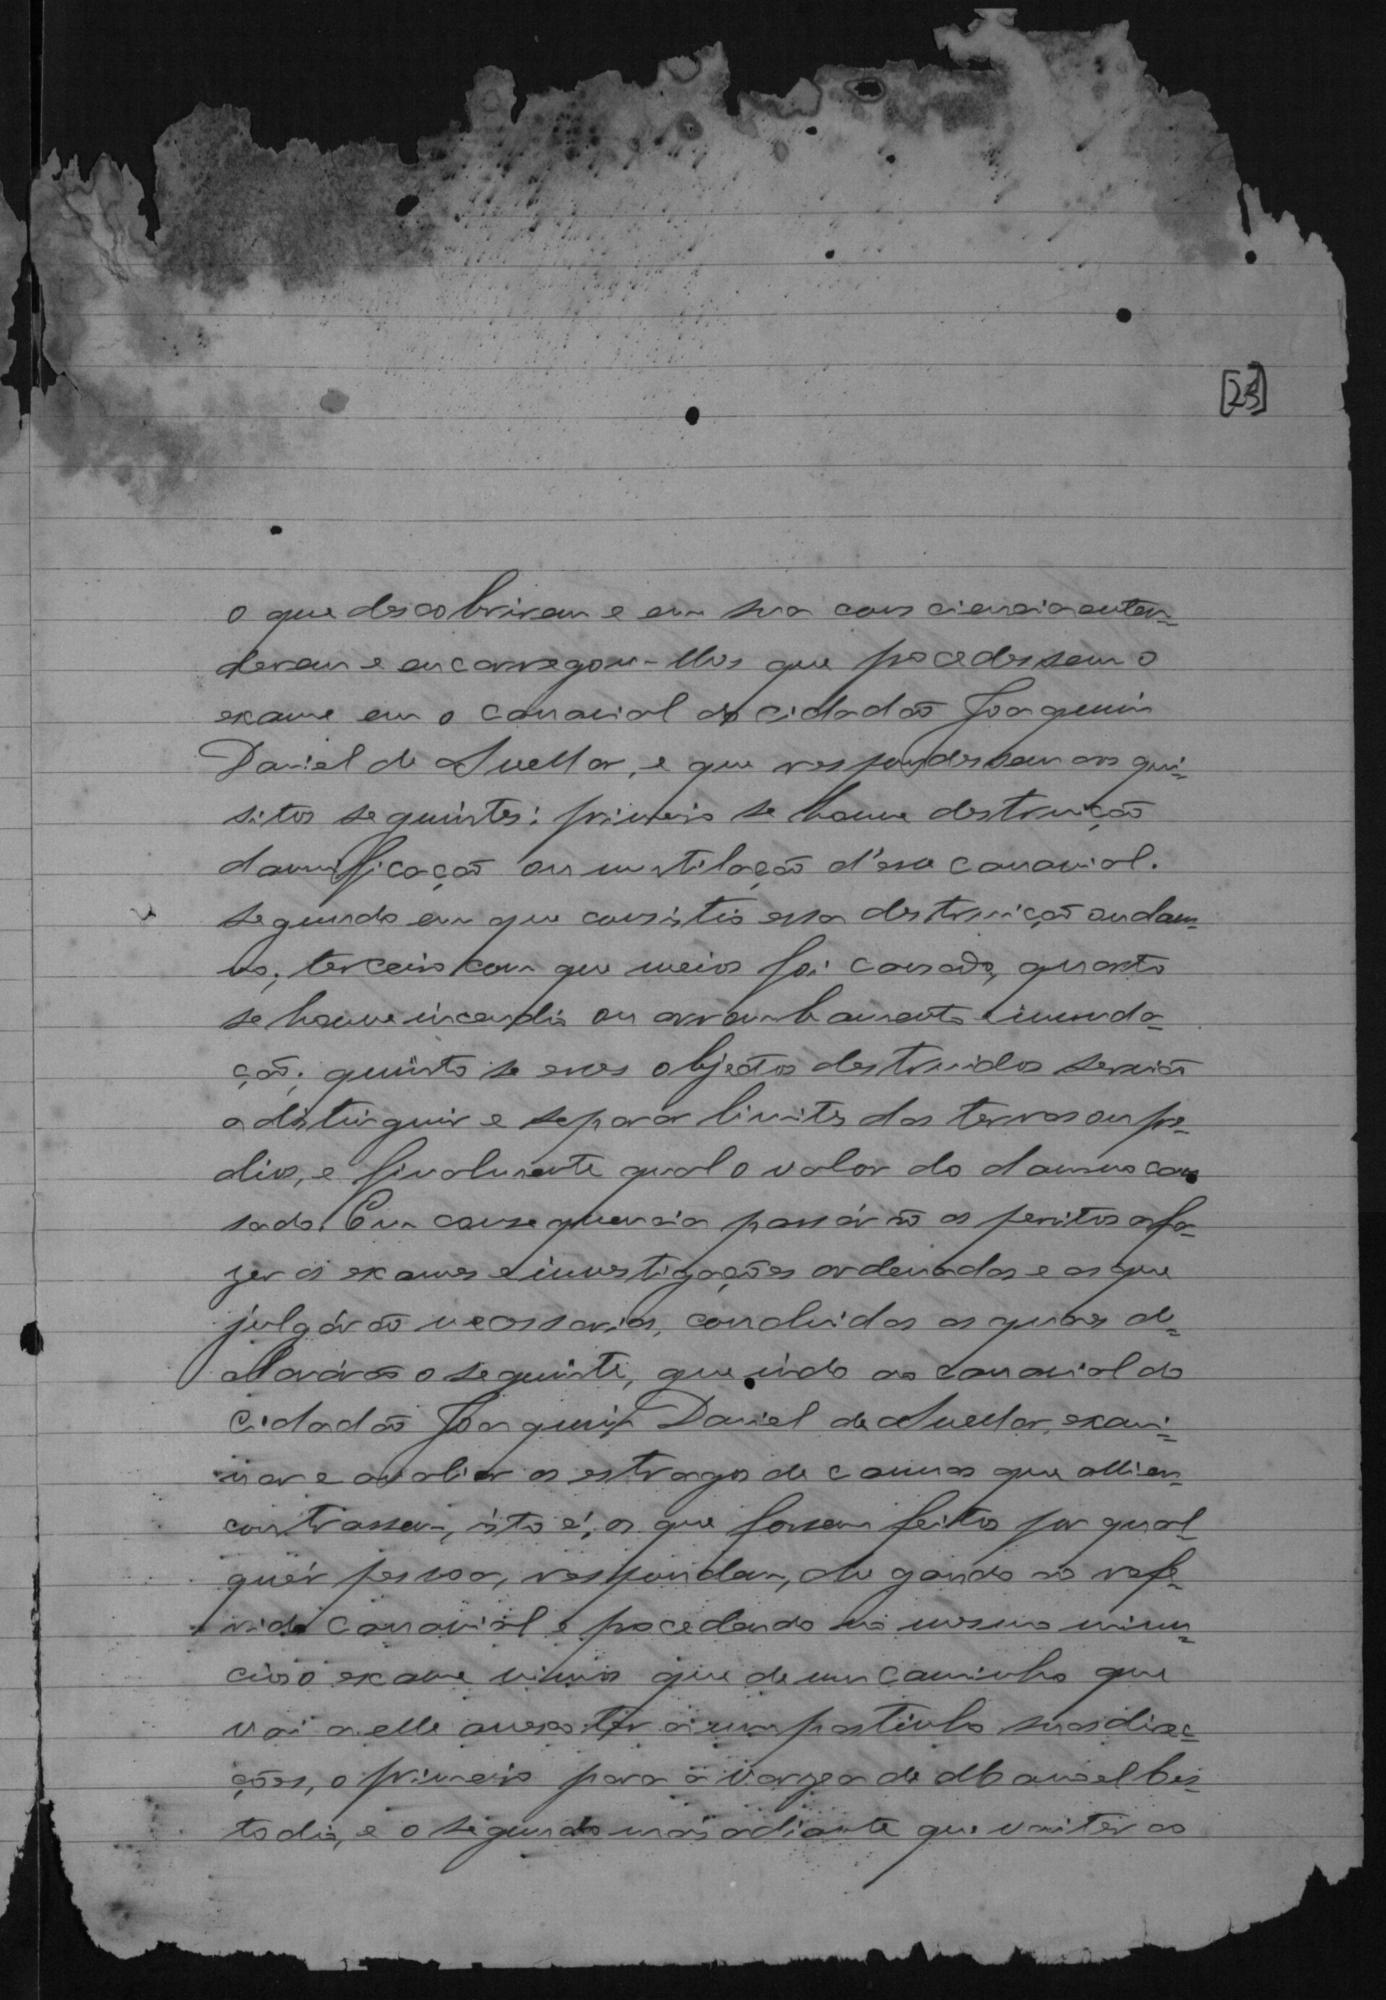 [23]
o que descobriram e em sua consciencia enten-
deram e encarregou-lhes que procedessem o
exame em o cannavial do cidadão Joaquim
Daniel de Suellar, e que respondessem aos qui-
sitos seguintes: primeiro se houve destruição
damnificação ou mutilação d'esse cannavial.
segundo em que consistio essa destruição ou dam-
no; terceiro com que meios foi causado, quarto
se houve incendio ou arrombamento inunda-
ção; quinto se esses objectos destruidos servião
a distinguir e separar limites das terras ou pre-
dios, e finalmente qual o valor do damno cau
sado. Em consequencia passárão os peritos a fa-
zer os exames e investigações ordenadas e as que
julgárão necessarias, concluidas as quaes de-
clarárão o seguinte, que indo ao cannavial do
cidadão Joaquim Daniel de Suellar, exami-
nar e avaliar os estragos de cannas que alli en-
contrassem, isto é, os que fossem feitos por qual-
quér pessoa, respondem, chegando no refe-
rido cannavial e procedendo no mesmo minu-
cioso exame vimos que de um caminho que
vai a elle ter a um pastinho suas direc-
ções, o primeiro para a varzea de Manoel Cus-
todio, e o segundo mais adiante que vai ter ao